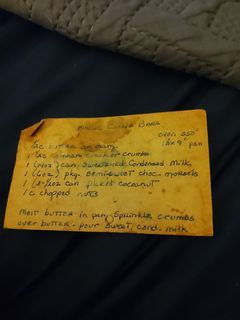 Magic Cookie Bars
oven 350°
13x9" pan
1/2c butter or marg.
1 1/2c graham cracker crumbs
1 (14oz) can Sweetened Condensed Milk,
1 (6oz) pkg. semi-sweet choc. morsels
1 (3 1/2oz can flaked coconut
1 c chopped nuts
Melt butter in pan. Sprinkle crumbs
over butter. pour sweet. cond. milk